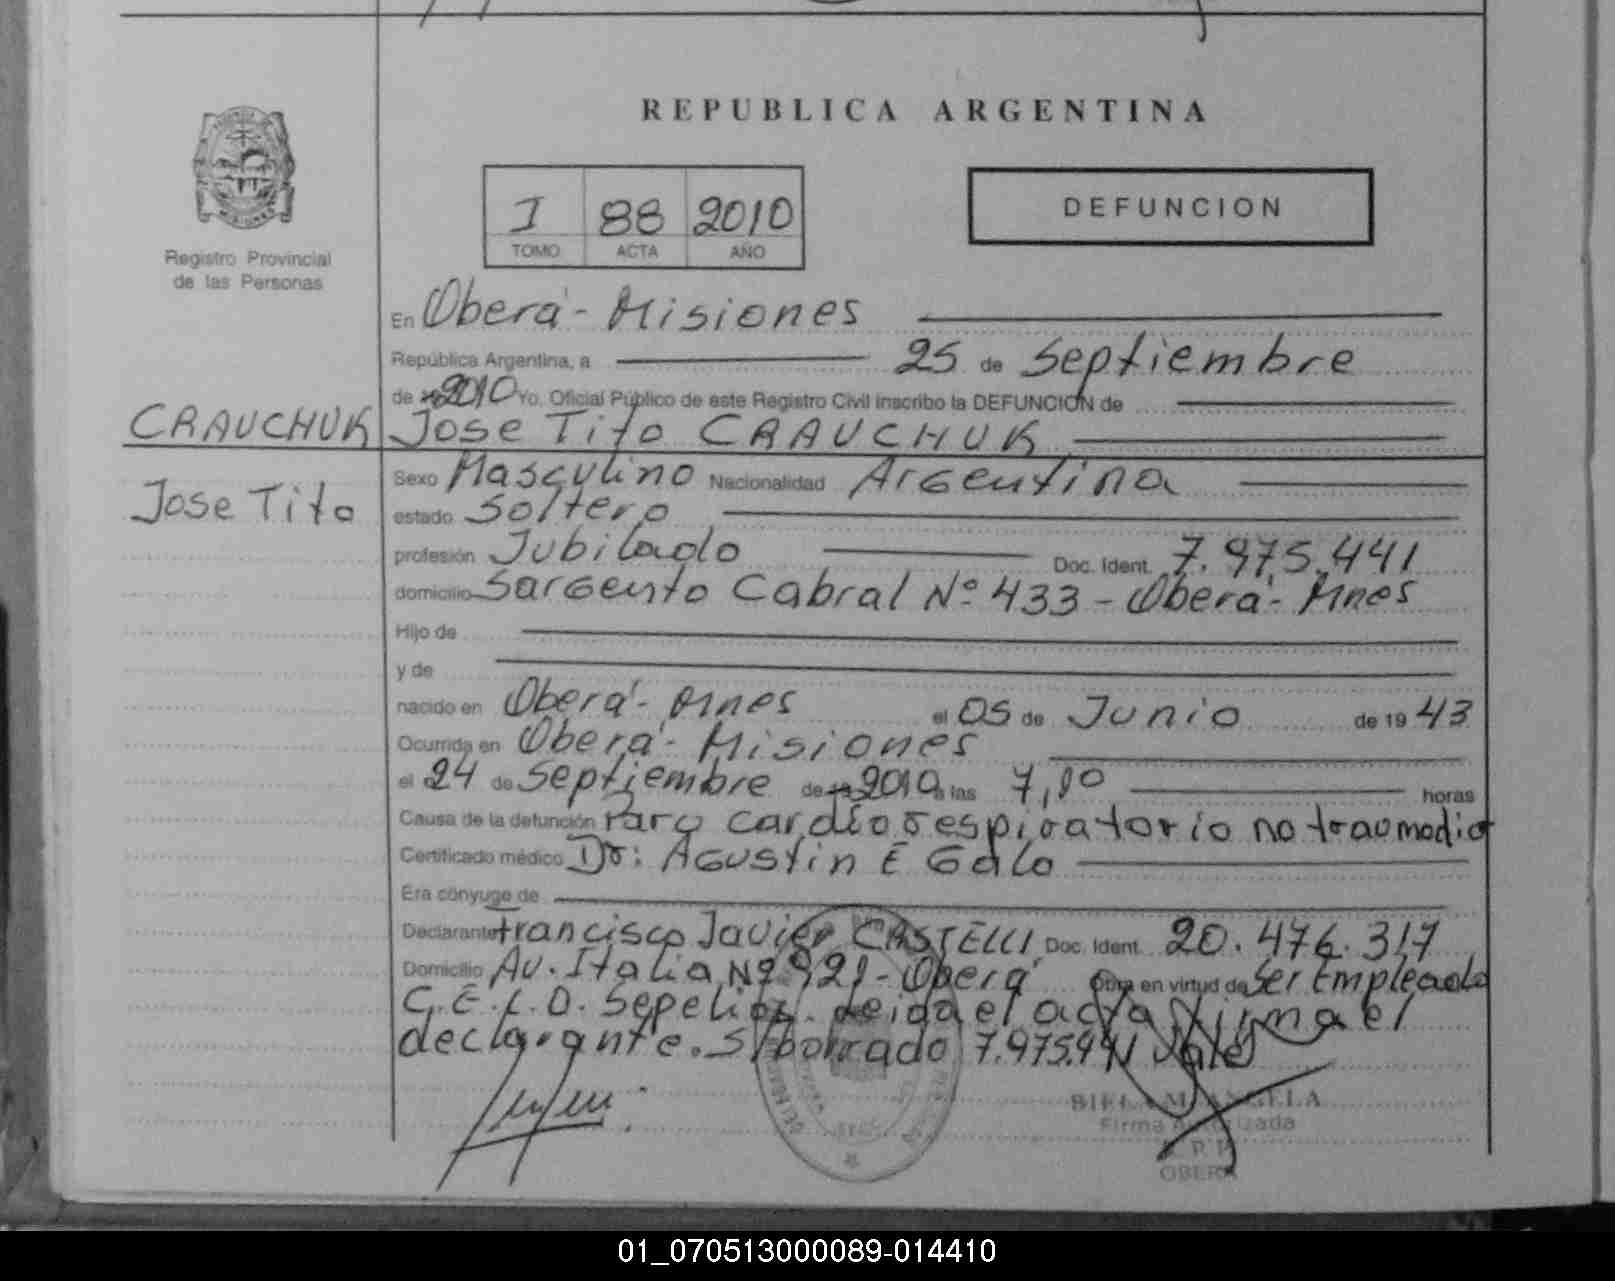 REPUBLICA ARGENTINA
I 88 2010
TOMO ACTA AÑO
DEFUNCION
Registro Provincial
de las Personas
En Oberá - Misiones
República Argentina, a 25 de Septiembre
de 2010 Yo, Oficial Público de este Registro Civil inscribo la DEFUNCION de
CRAUCHUK
Jose Tito CRAUCHUK
Jose Tito
Sexo Masculino Nacionalidad Argentina
estado Soltero
profesión Jubilado Doc. Ident. 7.975.441
domicilio Sargento Cabral Nº 433 - Oberá - Mnes
Hijo de
y de
nacido en Oberá - Mnes el 05 de Junio de 19 43
Ocurrida en Oberá - Misiones
el 24 de Septiembre de 2010 a las horas
Causa de la defunción Paro cardiorespiratorio no traumatico
Certificado médico Dr: Agustin E Galo
Era cónyuge de
Declarante Francisco Javier CASTELLI Doc. Ident. 20.476.317
Domicilio Av. Italia Nº 921 - Oberá Obra en virtud de Ser Empleado
C.E.L.O. Sepelios. Leida el acta firma el
declarante. S/borrado 7.975.441 Vale
BIELA M. ANGELA
Firma Autorizada
R. P. P.
OBERA
01_070513000089-014410